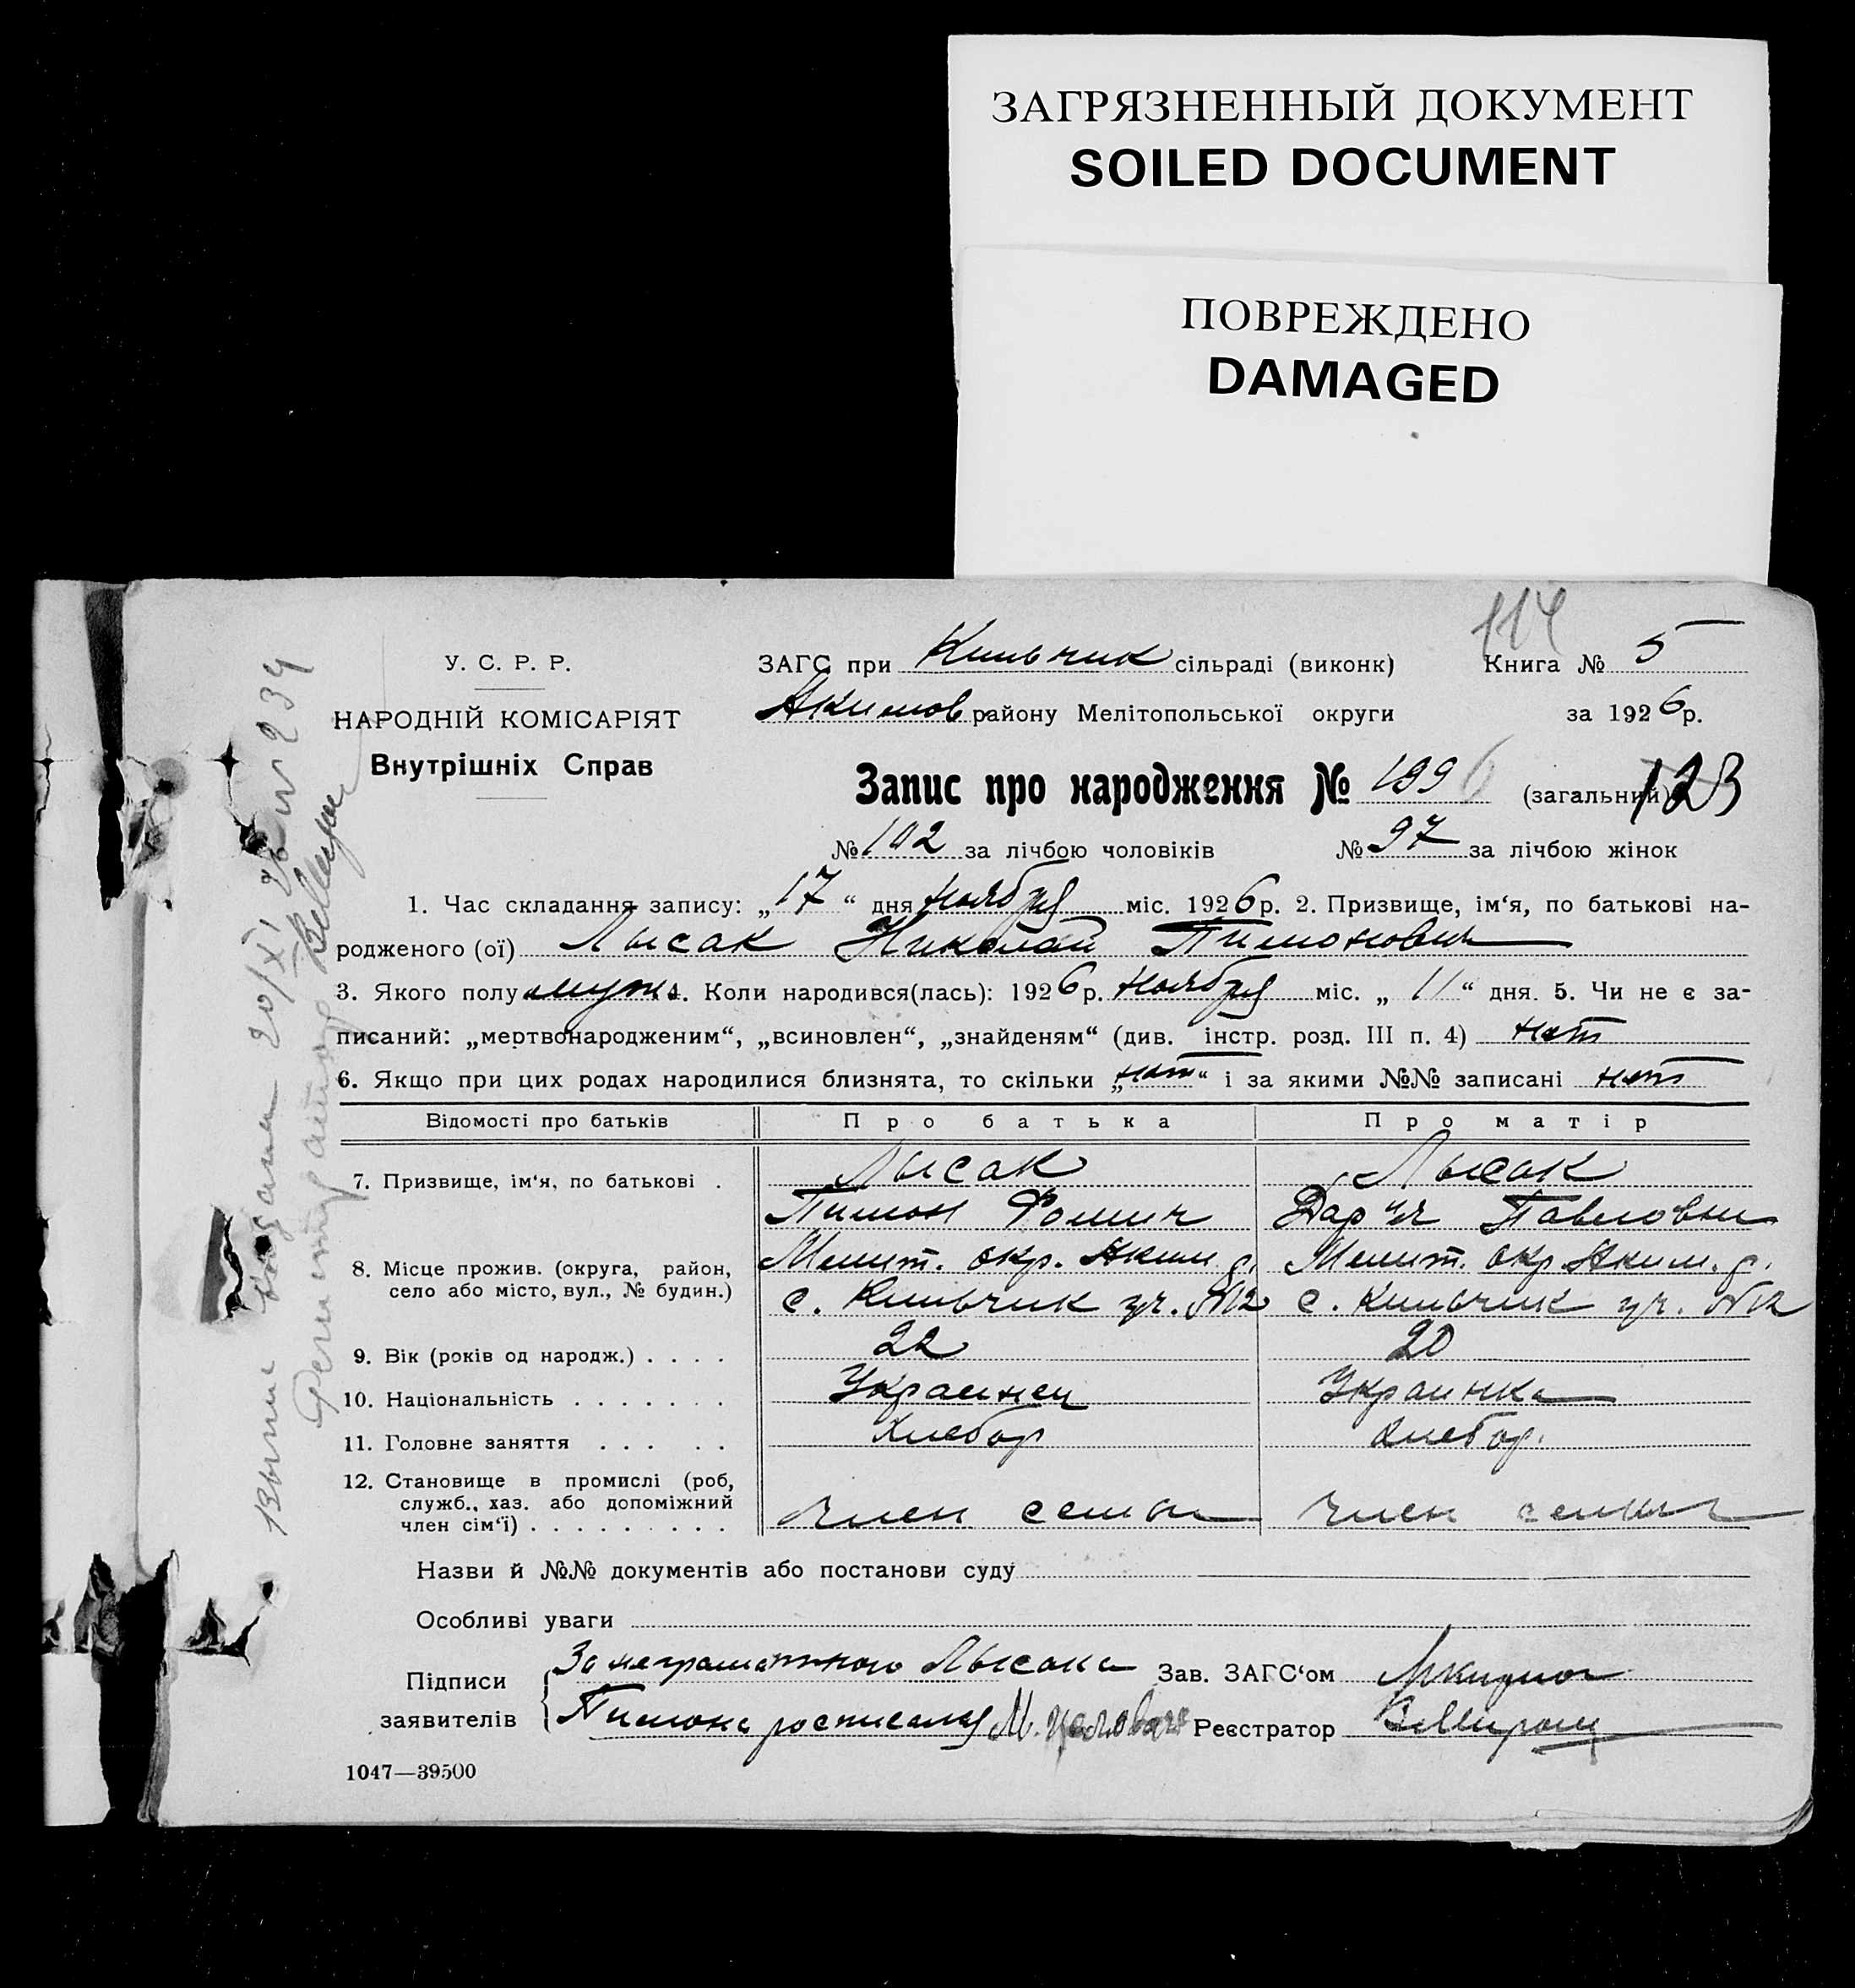 ЗАГРЯЗНЕННЫЙ ДОКУМЕНТ
SOILED DOCUMENT
ПОВРЕЖДЕНО
DAMAGED
114
У. С. Р. Р.
НАРОДНІЙ КОМІСАРІЯТ
Внутрішніх Справ
ЗАГС при Кильчик сільраді (виконк) Книга № 5
Акимов району Мелітопольської округи за 1926 р.
Запис про народження № 199 (загальний) 123
№ 102 за лічбою чоловіків № 97 за лічбою жінок
1. Час складання запису: „17“ дня ноября міс. 1926 р. 2. Призвище, ім‘я, по батькові на-
родженого (ої) Лысак Николай Пимонович
3. Якого полу муж. 4. Коли народився(лась): 1926 р. ноября міс. „11“ дня. 5. Чи не є за-
писаний: „мертвонародженим“, „всиновлен“, „знайденям“ (див. інстр. розд. III п. 4) нет
6. Якщо при цих родах народилися близнята, то скільки „нет“ і за якими №№ записані нет
Відомості про батьків Про батька Про матір
7. Призвище, ім‘я, по батькові . Лысак Лысак
Пимон Фомич Дарья Павловна
8. Місце прожив. (округа, район, Мелит. окр. Аким. р. Мелит. окр. Аким. р.
село або місто, вул., № будин.) с. Кильчик уч. №2 с. Кильчик уч. №2
9. Вік (років од народж.) . . . . 22 20
10. Національність . . . . . . . Украинец Украинка
11. Головне заняття . . . . . Хлебор Хлебор.
12. Становище в промислі (роб,
служб., хаз. або допоміжний
член сім‘ї) . . . . . . . . . член семьи член семьи
Назви й №№ документів або постанови суду
Особливі уваги
Підписи За неграмотного Лысака Зав. ЗАГС‘ом
заявителів Пимона росписался М. Реєстратор
1047—39500
20/XI 26 № 234